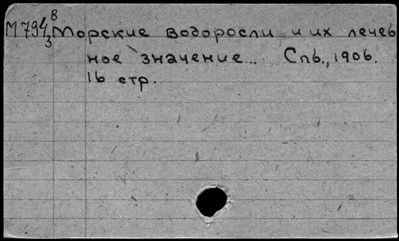 М 794 8/3 Морские водоросли и их лечеб
ное значение... Спб., 1906.
16 стр.